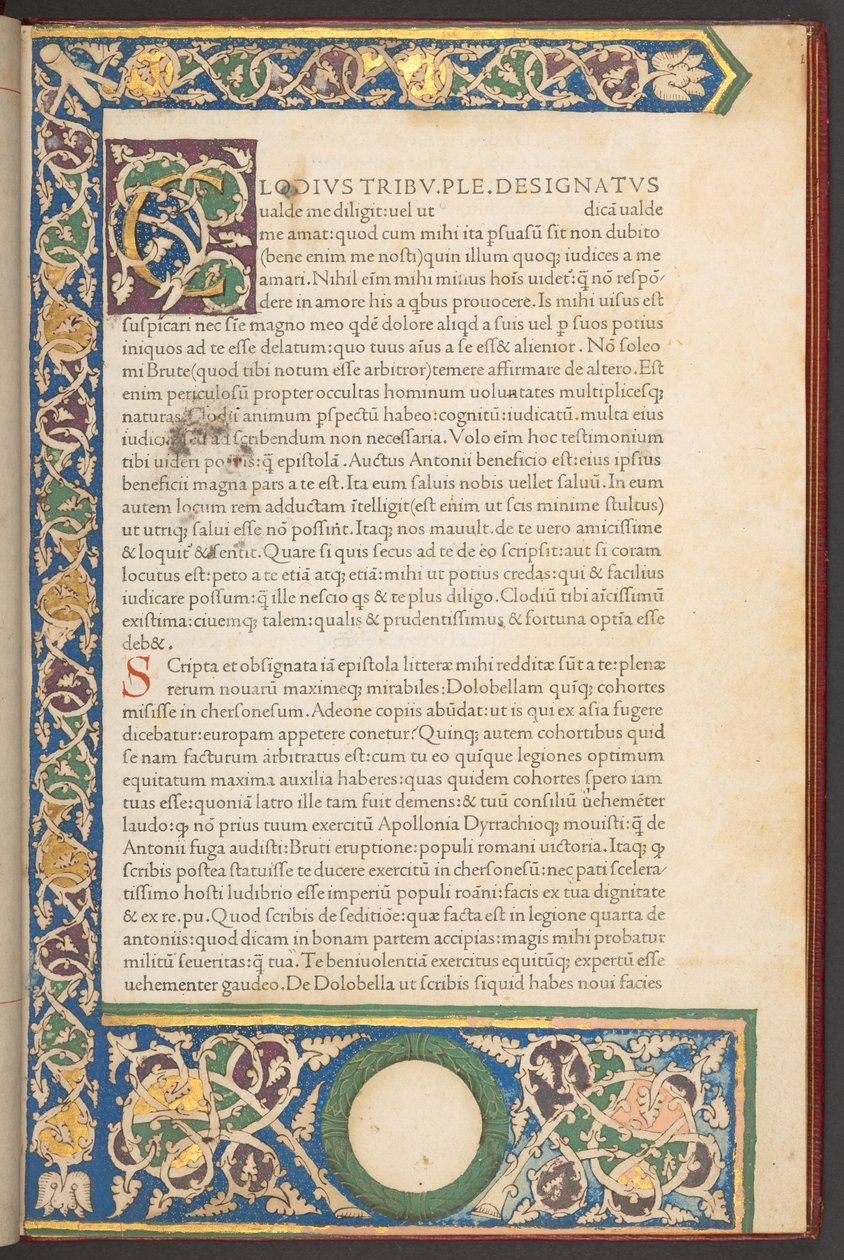 CLODIVS TRIBV.PLE.DESIGNATVS
ualde me diligit:uel ut dicã ualde
me amat:quod cum mihi ita ꝑsuasũ sit non dubito
(bene enim me nosti)quin illum quoqꝫ iudices a me
amari.Nihil eĩm mihi minus hoĩs uidet᷑:q̃ nõ respõ⸗
dere in amore his a qbus prouocere.Is mihi uisus est
suspicari nec sĩe magno meo qdẽ dolore aliqd a suis uel ꝑ suos potius
iniquos ad te esse delatum:quo tuus aĩus a se ess& alienior.Nõ soleo
mi Brute(quod tibi notum esse arbitror)temere affirmare de altero.Est
enim periculosũ propter occultas hominum uoluntates multiplicesqꝫ
naturas.Clodii animum ꝑspectũ habeo:cognitũ:iudicatũ.multa eius
iudicia sed ad scribendum non necessaria.Volo eĩm hoc testimonium
tibi uideri potius:q̃ epistolã.Auctus Antonii beneficio est:eius ipsius
beneficii magna pars a te est.Ita eum saluis nobis uellet saluũ.In eum
autem locum rem adductam ĩtelligit(est enim ut scis minime stultus)
ut utriqꝫ salui esse nõ possint.Itaqꝫ nos mauult.de te uero amicissime
& loquit᷑ & sentit.Quare si quis secus ad te de eo scripsit:aut si coram
locutus est:peto a te etiã atqꝫ etiã:mihi ut potius credas:qui & facilius
iudicare possum:q̃ ille nescio qs & te plus diligo.Clodiũ tibi aĩcissimũ
existima:ciuemqꝫ talem:qualis & prudentissimus & fortuna optĩa esse
deb&.
SCripta et obsignata iã epistola litteræ mihi redditæ sũt a te:plenæ
rerum nouarũ maximeqꝫ mirabiles:Dolobellam quĩqꝫ cohortes
misisse in chersonesum.Adeone copiis abũdat:ut is qui ex asia fugere
dicebatur:europam appetere conetur?Quinqꝫ autem cohortibus quid
se nam facturum arbitratus est:cum tu eo quĩque legiones optimum
equitatum maxima auxilia haberes:quas quidem cohortes spero iam
tuas esse:quoniã latro ille tam fuit demens:& tuũ consiliũ uehemẽter
laudo:ꝙ nõ prius tuum exercitũ Apollonia Dyrrachioqꝫ mouisti:q̃ de
Antonii fuga audisti:Bruti eruptione:populi romani uictoria.Itaqꝫ ꝙ
scribis postea statuisse te ducere exercitũ in chersonesũ:nec pati scelera⸗
tissimo hosti ludibrio esse imperiũ populi roãni:facis ex tua dignitate
& ex re.pu.Quod scribis de seditiõe:quæ facta est in legione quarta de
antoniis:quod dicam in bonam partem accipias:magis mihi probatur
militũ seueritas:q̃ tua.Te beniuolentiã exercitus equitũqꝫ expertũ esse
uehementer gaudeo.De Dolobella ut scribis siquid habes noui facies